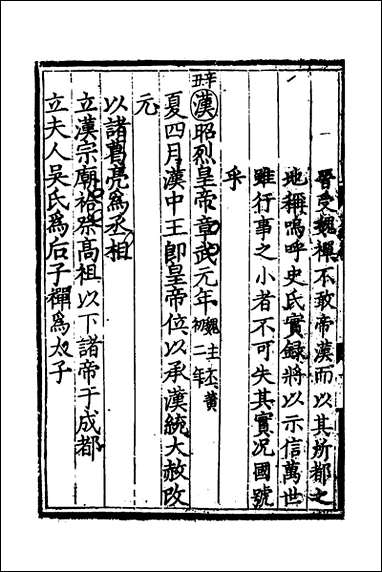 晉受魏禪不敢帝漢而以其所都之
地稱嗚呼史氏實録將以示信萬世
雖行事之小者不可失其實况國號
乎
辛丑漢昭烈皇帝章武元年魏主丕黄初二年
夏四月漢中王即皇帝位以承漢統大赦改
元
以諸葛亮爲丞相
立漢宗廟祫祭高祖以下諸帝于成都
立夫人吴氏爲后子禪爲太子